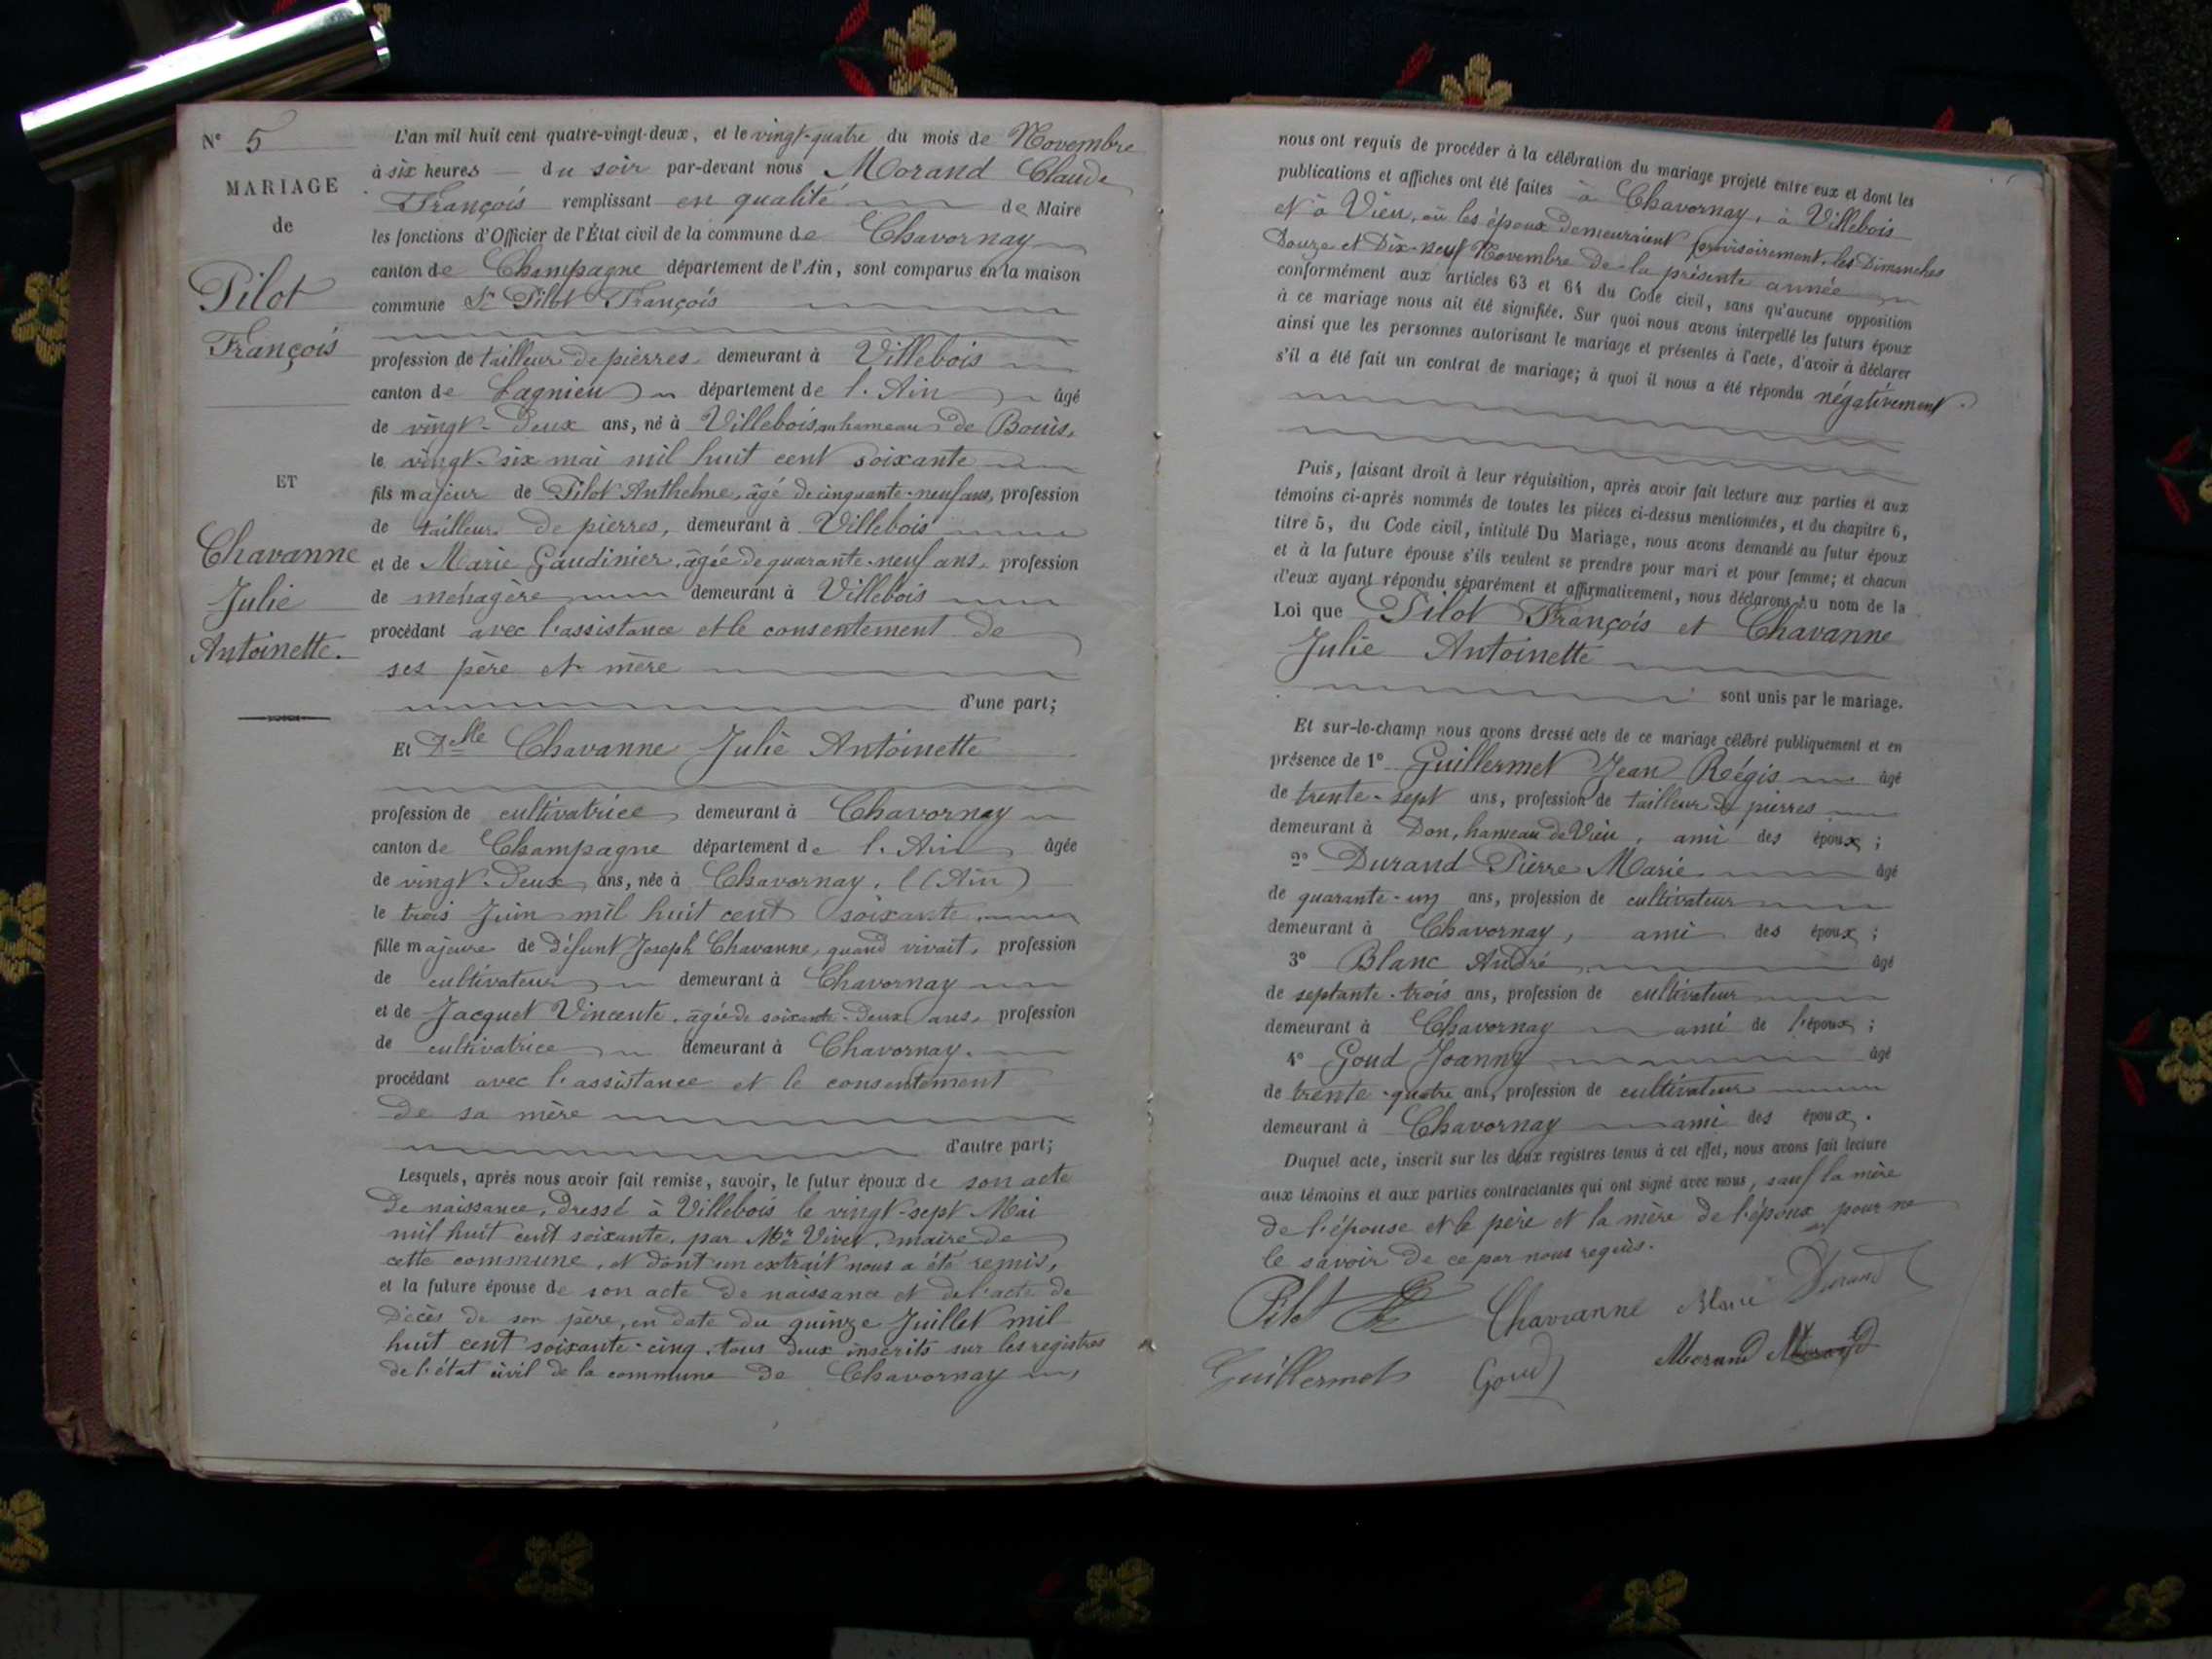 N° 5
MARIAGE
de
Pilot
François
ET
Chavanne
Julie
Antoinette.
L'an mil huit cent quatre-vingt-deux, et le vingt-quatre du mois de Novembre
à six heures du soir par-devant nous Morand Claude
François remplissant en qualité de Maire
les fonctions d'Officier de l'État civil de la commune de Chavornay
canton de Champagne département de l'Ain, sont comparus en la maison
commune Sr Pilot François
profession de tailleur de pierres demeurant à Villebois
canton de Lagnieu département de l'Ain âgé
de vingt-deux ans, né à Villebois, au hameau de Bouis,
le vingt-six mai mil huit cent soixante
fils majeur de Pilot Anthelme, âgé de cinquante-neuf ans, profession
de tailleur de pierres, demeurant à Villebois
et de Marie Gaudinier, âgée de quarante-neuf ans, profession
de ménagère demeurant à Villebois
procédant avec l'assistance et le consentement de
ses père et mère
d'une part;
Et Delle Chavanne Julie Antoinette
profession de cultivatrice demeurant à Chavornay
canton de Champagne département de l'Ain âgée
de vingt-deux ans, née à Chavornay, (Ain)
le trois Juin mil huit cent soixante
fille majeure de défunt Joseph Chavanne, quand vivait, profession
de cultivateur demeurant à Chavornay
et de Jacquet Vincente, âgée de soixante-deux ans, profession
de cultivatrice demeurant à Chavornay.
procédant avec l'assistance et le consentement
de sa mère
d'autre part;
Lesquels, après nous avoir fait remise, savoir, le futur époux de son acte
de naissance, dressé à Villebois le vingt-sept Mai
mil huit cent soixante, par Mr Vivet, maire de
cette commune, et dont un extrait nous a été remis,
et la future épouse de son acte de naissance et de l'acte de
décès de son père, en date du quinze Juillet mil
huit cent soixante-cinq, tous deux inscrits sur les registres
de l'état civil de la commune de Chavornay
nous ont requis de procéder à la célébration du mariage projeté entre eux et dont les
publications et affiches ont été faites à Chavornay, à Villebois
et à Vieu, où les époux demeuraient provisoirement, les Dimanches
Douze et Dix-neuf Novembre de la présente année
conformément aux articles 63 et 64 du Code civil, sans qu'aucune opposition
à ce mariage nous ait été signifiée. Sur quoi nous avons interpellé les futurs époux
ainsi que les personnes autorisant le mariage et présentes à l'acte, d'avoir à déclarer
s'il a été fait un contrat de mariage; à quoi il nous a été répondu négativement.
Puis, faisant droit à leur réquisition, après avoir fait lecture aux parties et aux
témoins ci-après nommés de toutes les pièces ci-dessus mentionnées, et du chapitre 6,
titre 5, du Code civil, intitulé Du Mariage, nous avons demandé au futur époux
et à la future épouse s'ils veulent se prendre pour mari et pour femme; et chacun
d'eux ayant répondu séparément et affirmativement, nous déclarons au nom de la
Loi que Pilot François et Chavanne
Julie Antoinette
sont unis par le mariage.
Et sur-le-champ nous avons dressé acte de ce mariage célébré publiquement et en
présence de 1° Guillermet Jean Régis âgé
de trente-sept ans, profession de tailleur de pierres
demeurant à Don, hameau de Vieu, ami des époux;
2° Durand Pierre Marie âgé
de quarante-un ans, profession de cultivateur
demeurant à Chavornay, ami des époux;
3° Blanc André âgé
de septante-trois ans, profession de cultivateur
demeurant à Chavornay ami de l'époux;
4° Goud Joanny âgé
de trente-quatre ans, profession de cultivateur
demeurant à Chavornay ami des époux.
Duquel acte, inscrit sur les deux registres tenus à cet effet, nous avons fait lecture
aux témoins et aux parties contractantes qui ont signé avec nous, sauf la mère
de l'épouse et le père et la mère de l'époux pour ne
le savoir de ce par nous requis.
Pilot Chavanne Marie Durand
Guillermet Goud Morand